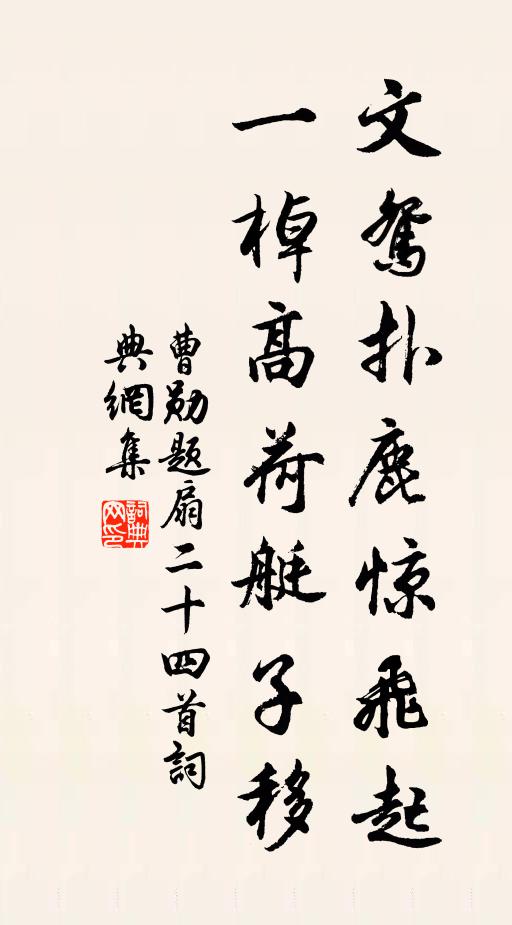 文鸳扑鹿惊飞起
一棹高荷艇子移
曹勋题扇二十四首詞
典網集
詞典网印